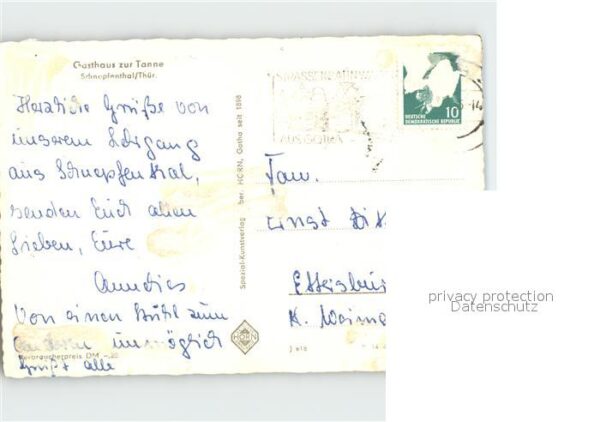 Gasthaus zur Tanne
Schnepfenthal/Thür.
Herzliche Grüße von
unserem Lehrgang
aus Schnepfenthal,
senden Euch allen
Lieben, Eure
Von einen Stuhl zum
anderen unmöglich
Verbraucherpreis DM -,20
Grüßt alle
Spezial-Kunstverlag ber. HORN, Gotha seit 1898
HORN
STRASSENBAHNW
AUS GOTHA
10
DEUTSCHE
DEMOKRATISCHE REPUBLIK
Fam.
Ernst
Ettersbur
K. Weima
privacy protection
Datenschutz